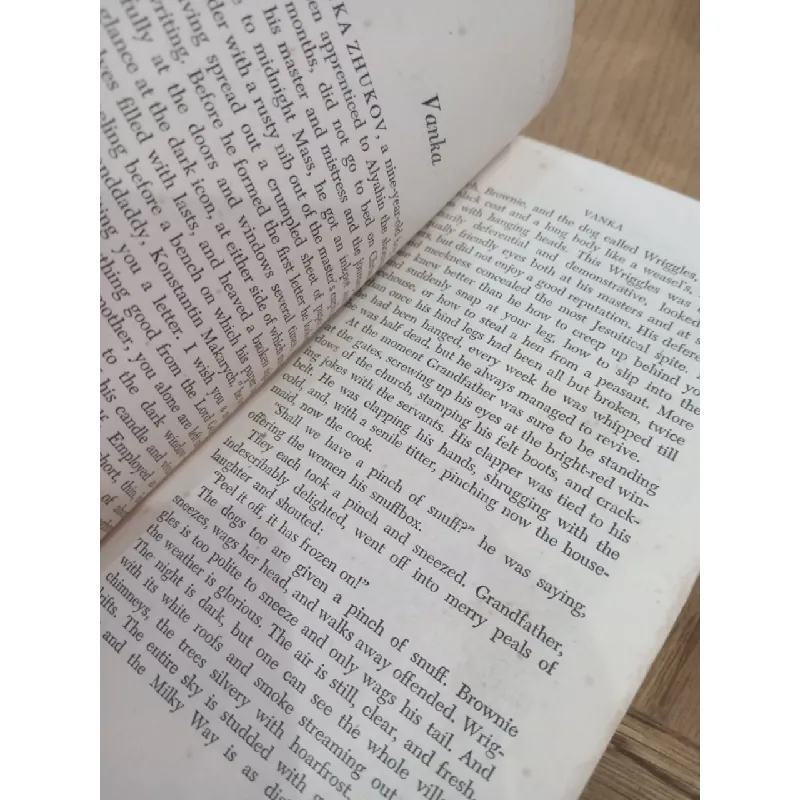 Vanka
KA ZHUKOV, a nine-year-old
en apprenticed to Alyahin the
months, did not go to bed on
his master and mistress and the
e to midnight Mass, he got an
der with a rusty nib out of the master's
ving spread out a crumpled sheet of
writing. Before he formed the first letter he
fully at the doors and windows several
glance at the dark icon, at either side of which
lves filled with lasts, and heaved a broken
eling before a bench on which his
nddaddy, Konstantin Makarych,
ing you a letter. I wish you a
thing good from the Lord
mother, you alone are left
to the dark window
his candle and
y. Employed
hort, thin,
of
VANKA
Brownie, and the dog called Wriggles,
coat and a long body like a weasel's,
with hanging heads. This Wriggles was
deferential and demonstrative, looked
ually friendly eyes both at his masters and at
but did not enjoy a good reputation. His defere
and meekness concealed the most Jesuitical spite.
knew better than he how to creep up behind yo
and suddenly snap at your leg, how to slip into the
house, or how to steal a hen from a peasant. More
an once his hind legs had been all but broken, twice
he had been hanged, every week he was whipped till
he was half dead, but he always managed to revive.
At the moment Grandfather was sure to be standing
at the gates, screwing up his eyes at the bright-red win-
dows of the church, stamping his felt boots, and crack-
ing jokes with the servants. His clapper was tied to his
belt. He was clapping his hands, shrugging with the
cold, and, with a senile titter, pinching now the house-
maid, now the cook.
"Shall we have a pinch of snuff?" he was saying,
offering the women his snuffbox.
They each took a pinch and sneezed. Grandfather,
indescribably delighted, went off into merry peals of
laughter and shouted:
"Peel it off, it has frozen on!"
The dogs too are given a pinch of snuff. Brownie
sneezes, wags her head, and walks away offended. Wrig-
gles is too polite to sneeze and only wags his tail. And
the weather is glorious. The air is still, clear, and fresh.
The night is dark, but one can see the whole vill
with its white roofs and smoke streaming out
chimneys, the trees silvery with hoarfrost,
ifts. The entire sky is studded with
and the Milky Way is as